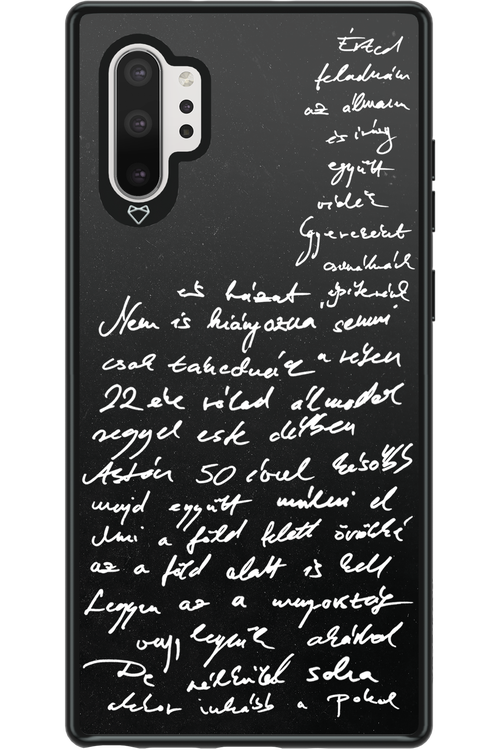 Érted
feladnám
az álmaim
és így
együtt
vidék
Gyerekeket
csinálnánk
és házat építenénk
Nem is hiányozna semmi
csak takednák a réten
22 éve rólad álmodok
reggel este délben
Aztán 50 évvel később
majd együtt múlni el
Ami a föld felett örökké
az a föld alatt is kell
Legyen az a mennyország
vagy legyünk akárhol
De nélküled soha
akkor inkább a pokol